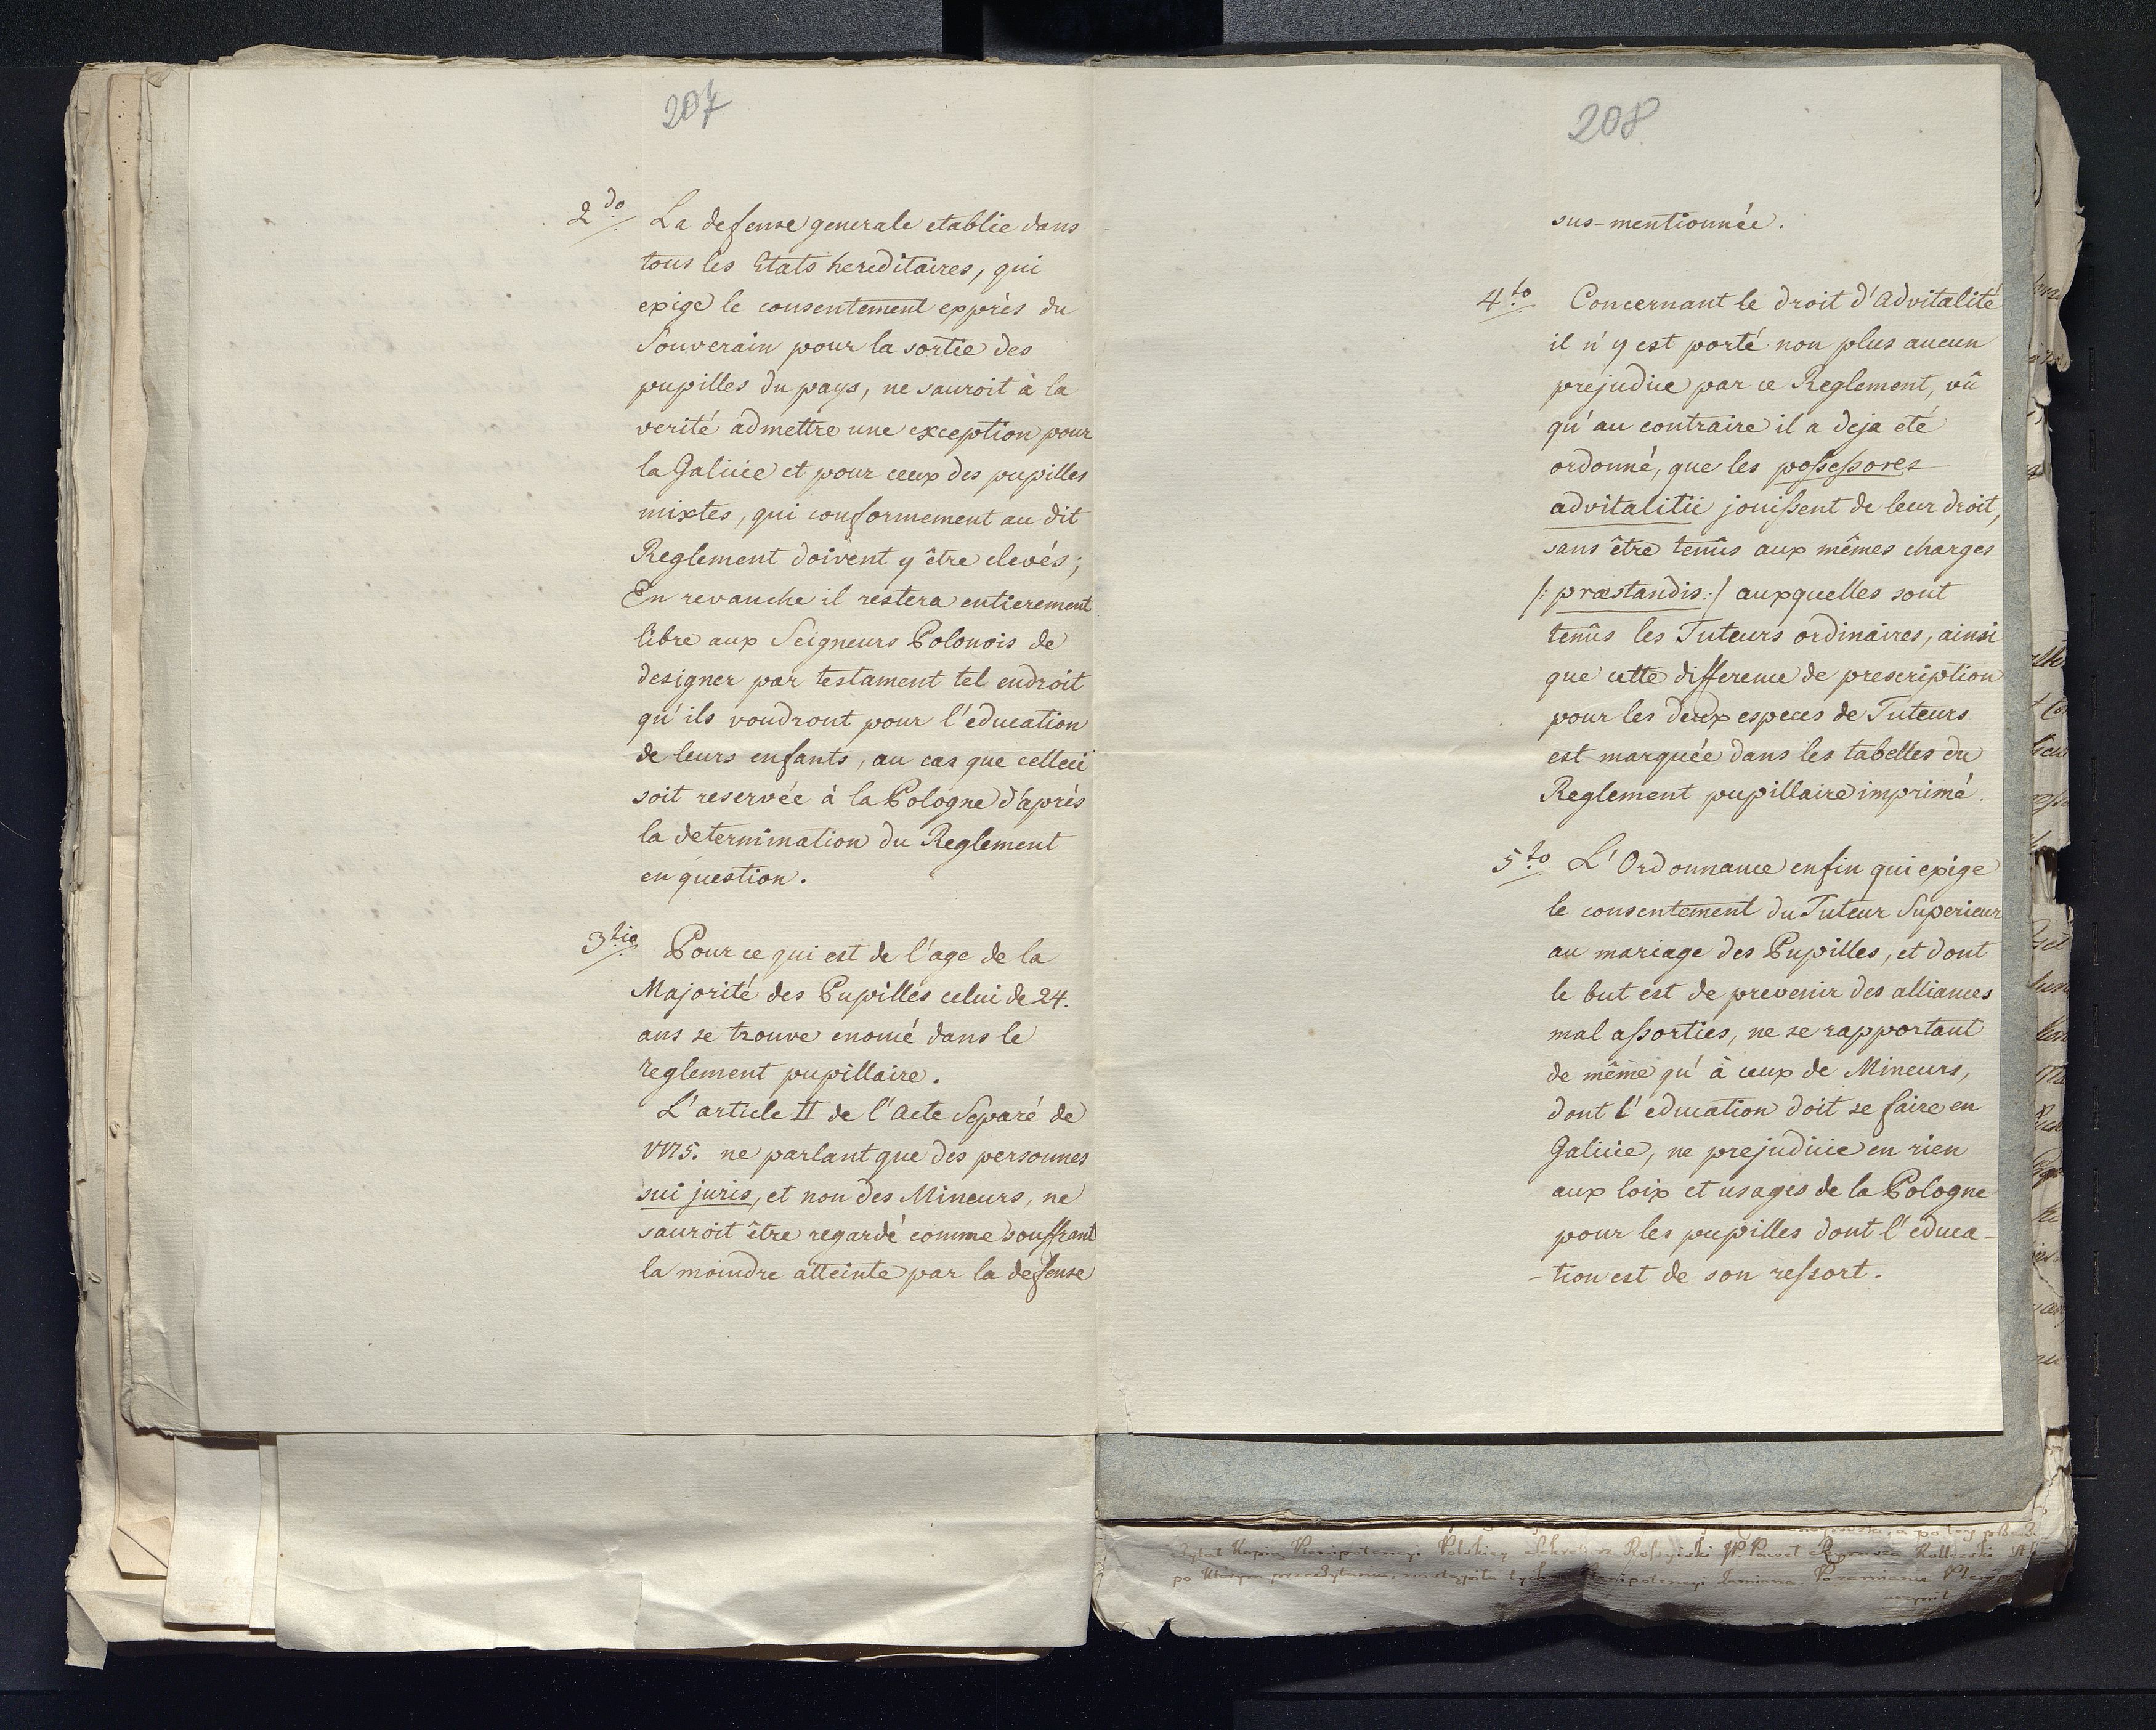 207
2do La defense generale etablie dans
tous les Etats hereditaires, qui
exige le consentement exprès du
Souverain pour la sortie des
pupilles du pays, ne sauroit à la
verité admettre une exception pour
la Galicie et pour ceux des pupilles
mixtes, qui conformement au dit
Reglement doivent y être elevés;
En revanche il restera entierement
libre aux Seigneurs Polonois de
designer par testament tel endroit
qu'ils voudront pour l'éducation
de leurs enfants, au cas que celleci
soit reservée à la Pologne d'après
la determination du Reglement
en question.
3tio Pour ce qui est de l'age de la
Majorité des Pupilles celui de 24.
ans se trouve enoncé dans le
reglement pupillaire.
L'article II de l'Acte Separé de
1775. ne parlant que des personnes
sui juris, et non des Mineurs, ne
sauroit être regardé comme souffrant
la moindre atteinte par la defense
208
sus-mentionnée.
4to Concernant le droit d'Advitalité
il n'y est porté non plus aucun
prejudice par ce Reglement, vû
qu'au contraire il a deja eté
ordonné, que les possessores
advitalitii jouissent de leur droit,
sans être tenûs aux mêmes charges
/: præstandis :/ auxquelles sont
tenûs les Tuteurs ordinaires, ainsi
que cette difference de prescription
pour les deux especes de Tuteurs
est marquée dans les tabelles du
Reglement pupillaire imprimé.
5to L'Ordonnance enfin qui exige
le consentement du Tuteur Superieur
au mariage des Pupilles, et dont
le but est de prevenir des alliances
mal assorties, ne se rapportant
de même qu'à ceux de Mineurs,
dont l'éducation doit se faire en
Galicie, ne prejudicie en rien
aux loix et usages de la Pologne
pour les pupilles dont l'educa-
-tion est de son ressort.